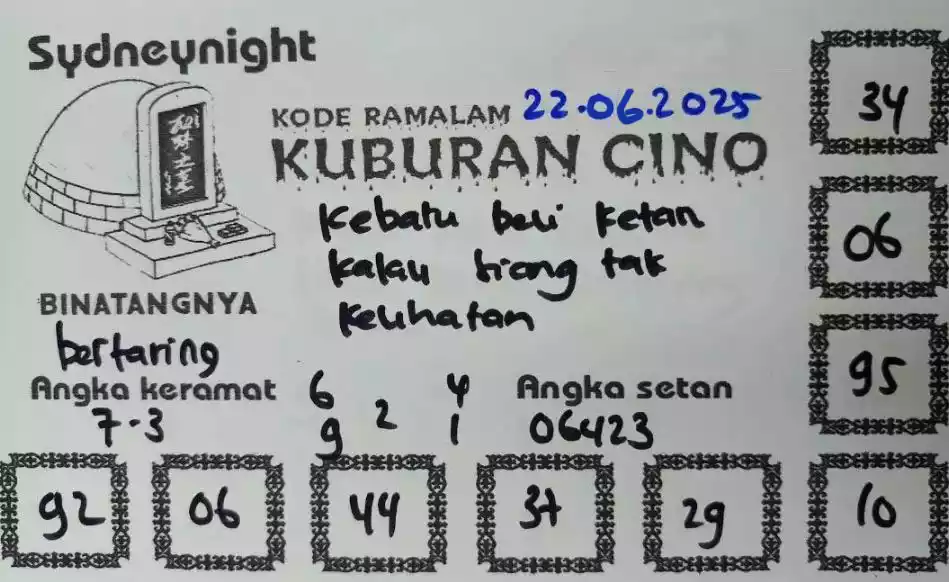 Sydneynight
KODE RAMALAM 22.06.2025
KUBURAN CINO
Kebatu beli ketan
kalau siang tak
kelihatan
BINATANGNYA
bertaring
Angka keramat
7-3
6 4
2
9 1
Angka setan
06423
34
06
95
92
06
44
37
29
10